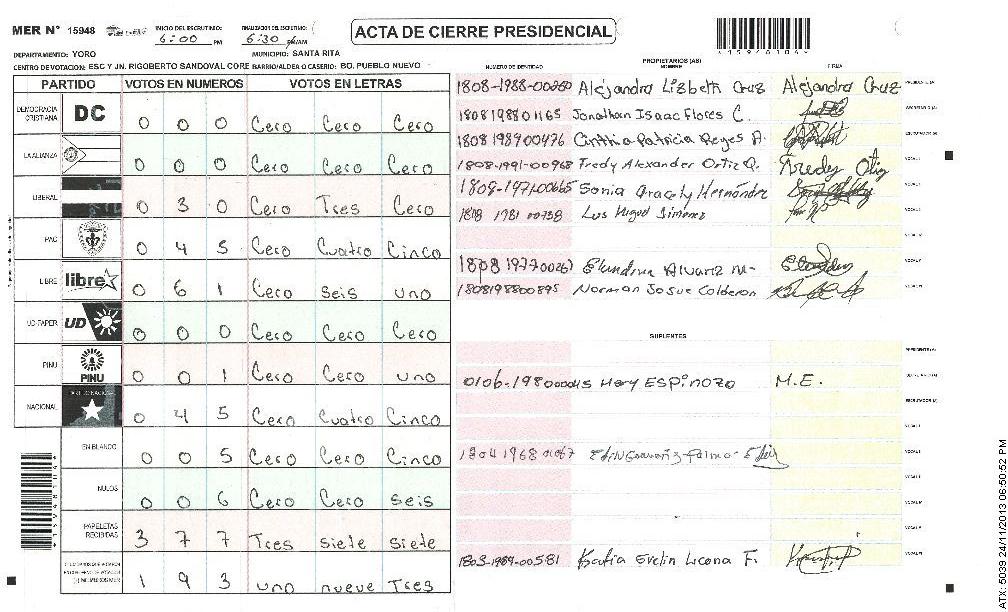 MER N° 15948 INICIO DEL ESCRUTINIO: 6:00 PM FINALIZACION DEL ESCRUTINIO: 6:30
ACTA DE CIERRE PRESIDENCIAL
DEPARTAMENTO: YORO MUNICIPIO: SANTA RITA
CENTRO DE VOTACION: ESC Y JN. RIGOBERTO SANDOVAL CORE BARRIO/ALDEA O CASERIO: BO. PUEBLO NUEVO
PARTIDO VOTOS EN NUMEROS VOTOS EN LETRAS
DEMOCRACIA CRISTIANA DC 0 0 0 Cero Cero Cero
LA ALIANZA 0 0 0 Cero Cero Cero
LIBERAL 0 3 0 Cero Tres Cero
PAC 0 4 5 Cero Cuatro Cinco
LIBRE libre 0 6 1 Cero seis uno
UD-FAPER UD 0 0 0 Cero Cero Cero
PINU PINU 0 0 1 Cero Cero uno
NACIONAL 0 4 5 Cero Cuatro Cinco
EN BLANCO 0 0 5 Cero Cero Cinco
NULOS 0 0 6 Cero Cero seis
PAPELETAS RECIBIDAS 3 7 7 Tres siete siete
1 9 3 uno nueve Tres
NUMERO DE IDENTIDAD PROPIETARIOS (AS) NOMBRE FIRMA
Alejandra Lizbeth Cruz Alejandra Cruz
1808198801165 Jonathan Isaac Flores C.
1808 198900476 Cinthia Patricia Reyes A.
1808-1991-00968 Fredy Alexander Ortiz Q. Fredy Ortiz
1808-1971-00665 Sonia Aracely Hernández
1808 1981 00738 Luis Miguel Jimenez
1808 1977 00267 Alvarez M-
1808198800895 Norman Josue Calderon
SUPLENTES
0106-1980 Mary ESPINOZA M.E.
1804 1968
1803-1989-00581 Katia Evelin Licona F.
ATX: 5039 24/11/2013 06:50:52 PM